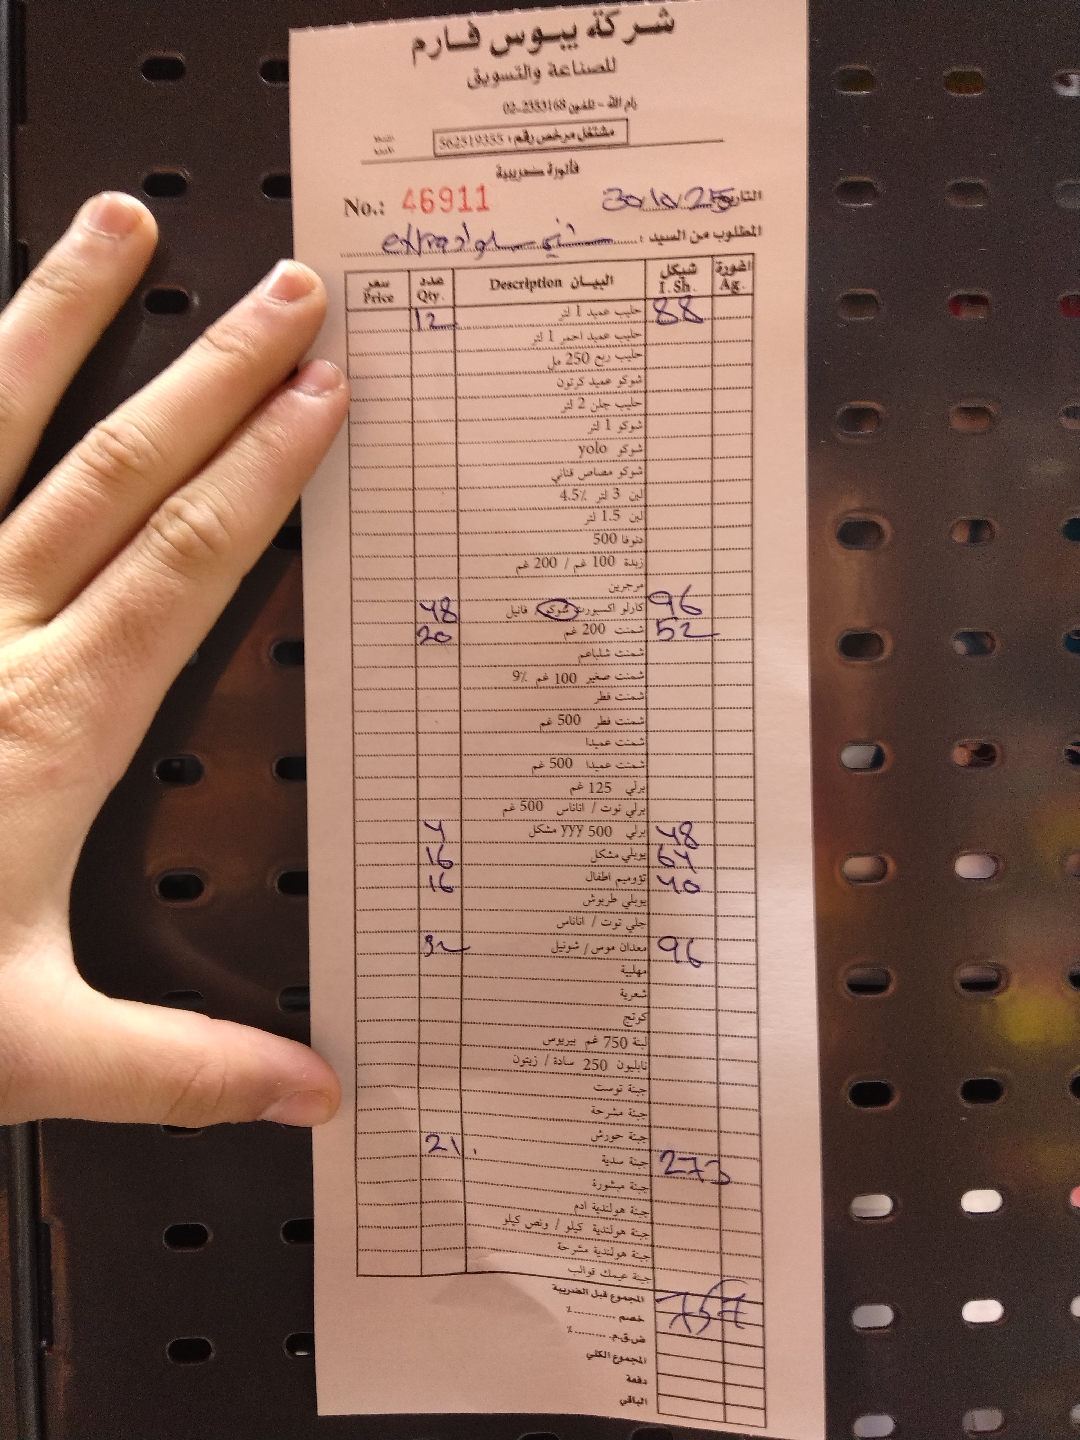 شركة يبوس فارم
للصناعة والتسويق
رام الله - تلفون 02-2353168
مشتغل مرخص رقم: 562519355
فاتورة ضريبية
No.: 46911 التاريخ 30/10/25
المطلوب من السيد: extra
اغورة Ag. شيكل I. Sh. البيان Description عدد Qty. سعر Price
88 حليب عميد 1 لتر 12
حليب عميد احمر 1 لتر
حليب ربع 250 مل
شوكو عميد كرتون
حليب جلن 2 لتر
شوكو 1 لتر
شوكو yolo
شوكو مصاص قناني
لبن 3 لتر 4.5٪
لبن 1.5 لتر
دنوفا 500
زبدة 100 غم / 200 غم
مرجرين
96 كارلو اكسبورت شوكو / فانيل 48
52 شمنت 200 غم 20
شمنت شلباعم
شمنت صغير 100 غم 9٪
شمنت فطر
شمنت فطر 500 غم
شمنت عميدا
شمنت عميدا 500 غم
برلي 125 غم
برلي توت / اناناس 500 غم
48 برلي 500 yyy مشكل 4
64 يوبلي مشكل 16
40 تؤوميم اطفال 16
يوبلي طربوش
جلي توت / اناناس
96 معدان موس / شونيل 32
مهلبية
شعرية
كوتج
لبنة 750 غم بيريوس
نابليون 250 سادة / زيتون
جبنة توست
جبنة مشرحة
جبنة حورش
273 جبنة سدية 21
جبنة مبشورة
جبنة هولندية ادم
جبنة هولندية كيلو / ونص كيلو
جبنة هولندية مشرحة
جبنة عيمك قوالب
المجموع قبل الضريبة 757
خصم ........... ٪
ض.ق.م. ......... ٪
المجموع الكلي
دفعة
الباقي